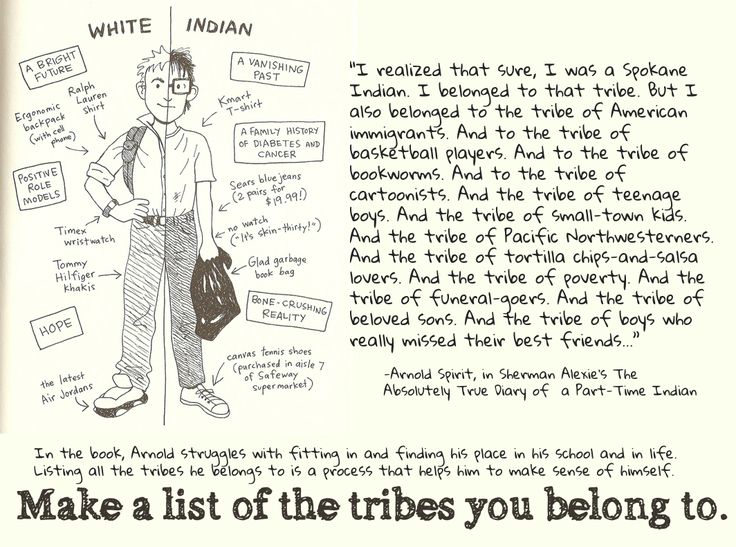 WHITE INDIAN
A BRIGHT
FUTURE
Ralph
Lauren
shirt
Ergonomic
backpack
(with cell
phone)
POSITIVE
ROLE
MODELS
Timex
wristwatch
Tommy
Hilfiger
Khakis
HOPE
the latest
Air Jordans
A VANISHING
PAST
Kmart
T-shirt
A FAMILY HISTORY
OF DIABETES AND
CANCER
Sears blue jeans
(2 pairs for
$19.99!)
no watch
("It's skin-thirty!")
Glad garbage
book bag
BONE-CRUSHING
REALITY
canvas tennis shoes
(purchased in aisle 7
of Safeway
supermarket)
"I realized that sure, I was a Spokane
Indian. I belonged to that tribe. But I
also belonged to the tribe of American
immigrants. And to the tribe of
basketball players. And to the tribe of
bookworms. And to the tribe of
cartoonists. And the tribe of teenage
boys. And the tribe of small-town kids.
And the tribe of Pacific Northwesterners.
And the tribe of tortilla chips-and-salsa
lovers. And the tribe of poverty. And the
tribe of funeral-goers. And the tribe of
beloved sons. And the tribe of boys who
really missed their best friends..."
-Arnold Spirit, in Sherman Alexie's The
Absolutely True Diary of a Part-Time Indian
In the book, Arnold struggles with fitting in and finding his place in his school and in life.
Listing all the tribes he belongs to is a process that helps him to make sense of himself.
Make a list of the tribes you belong to.